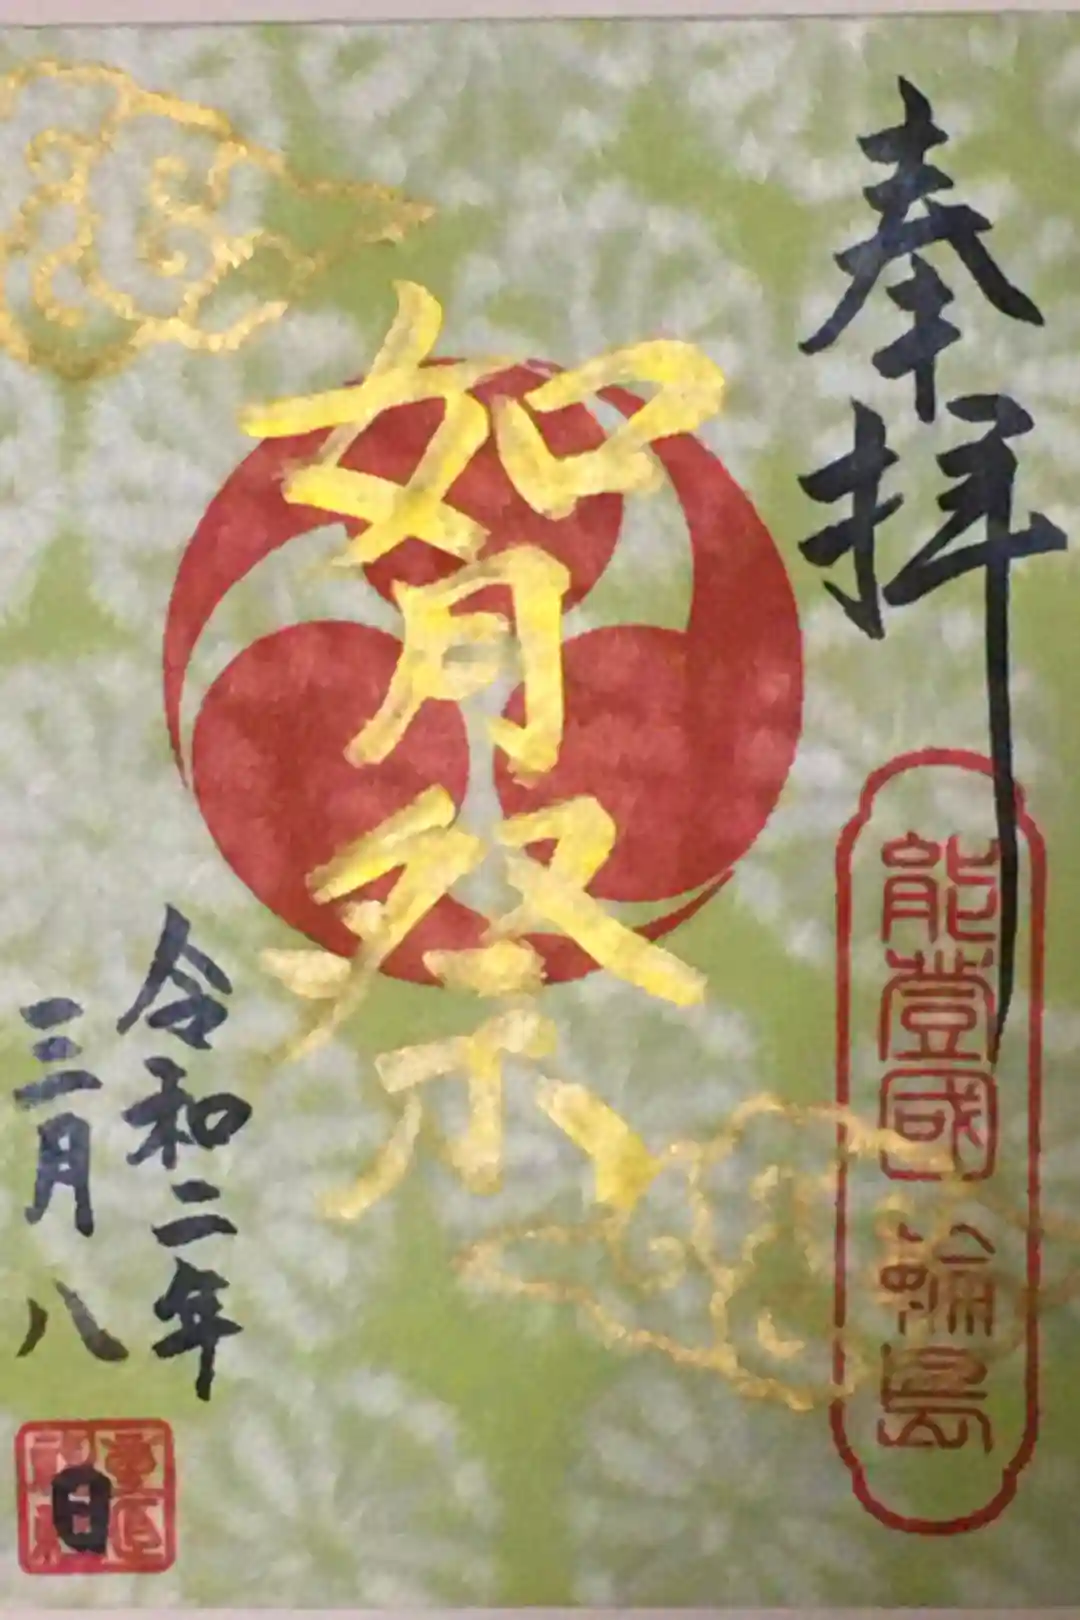 奉拝
能登國輪島
如月祭
令和二年
三月八日